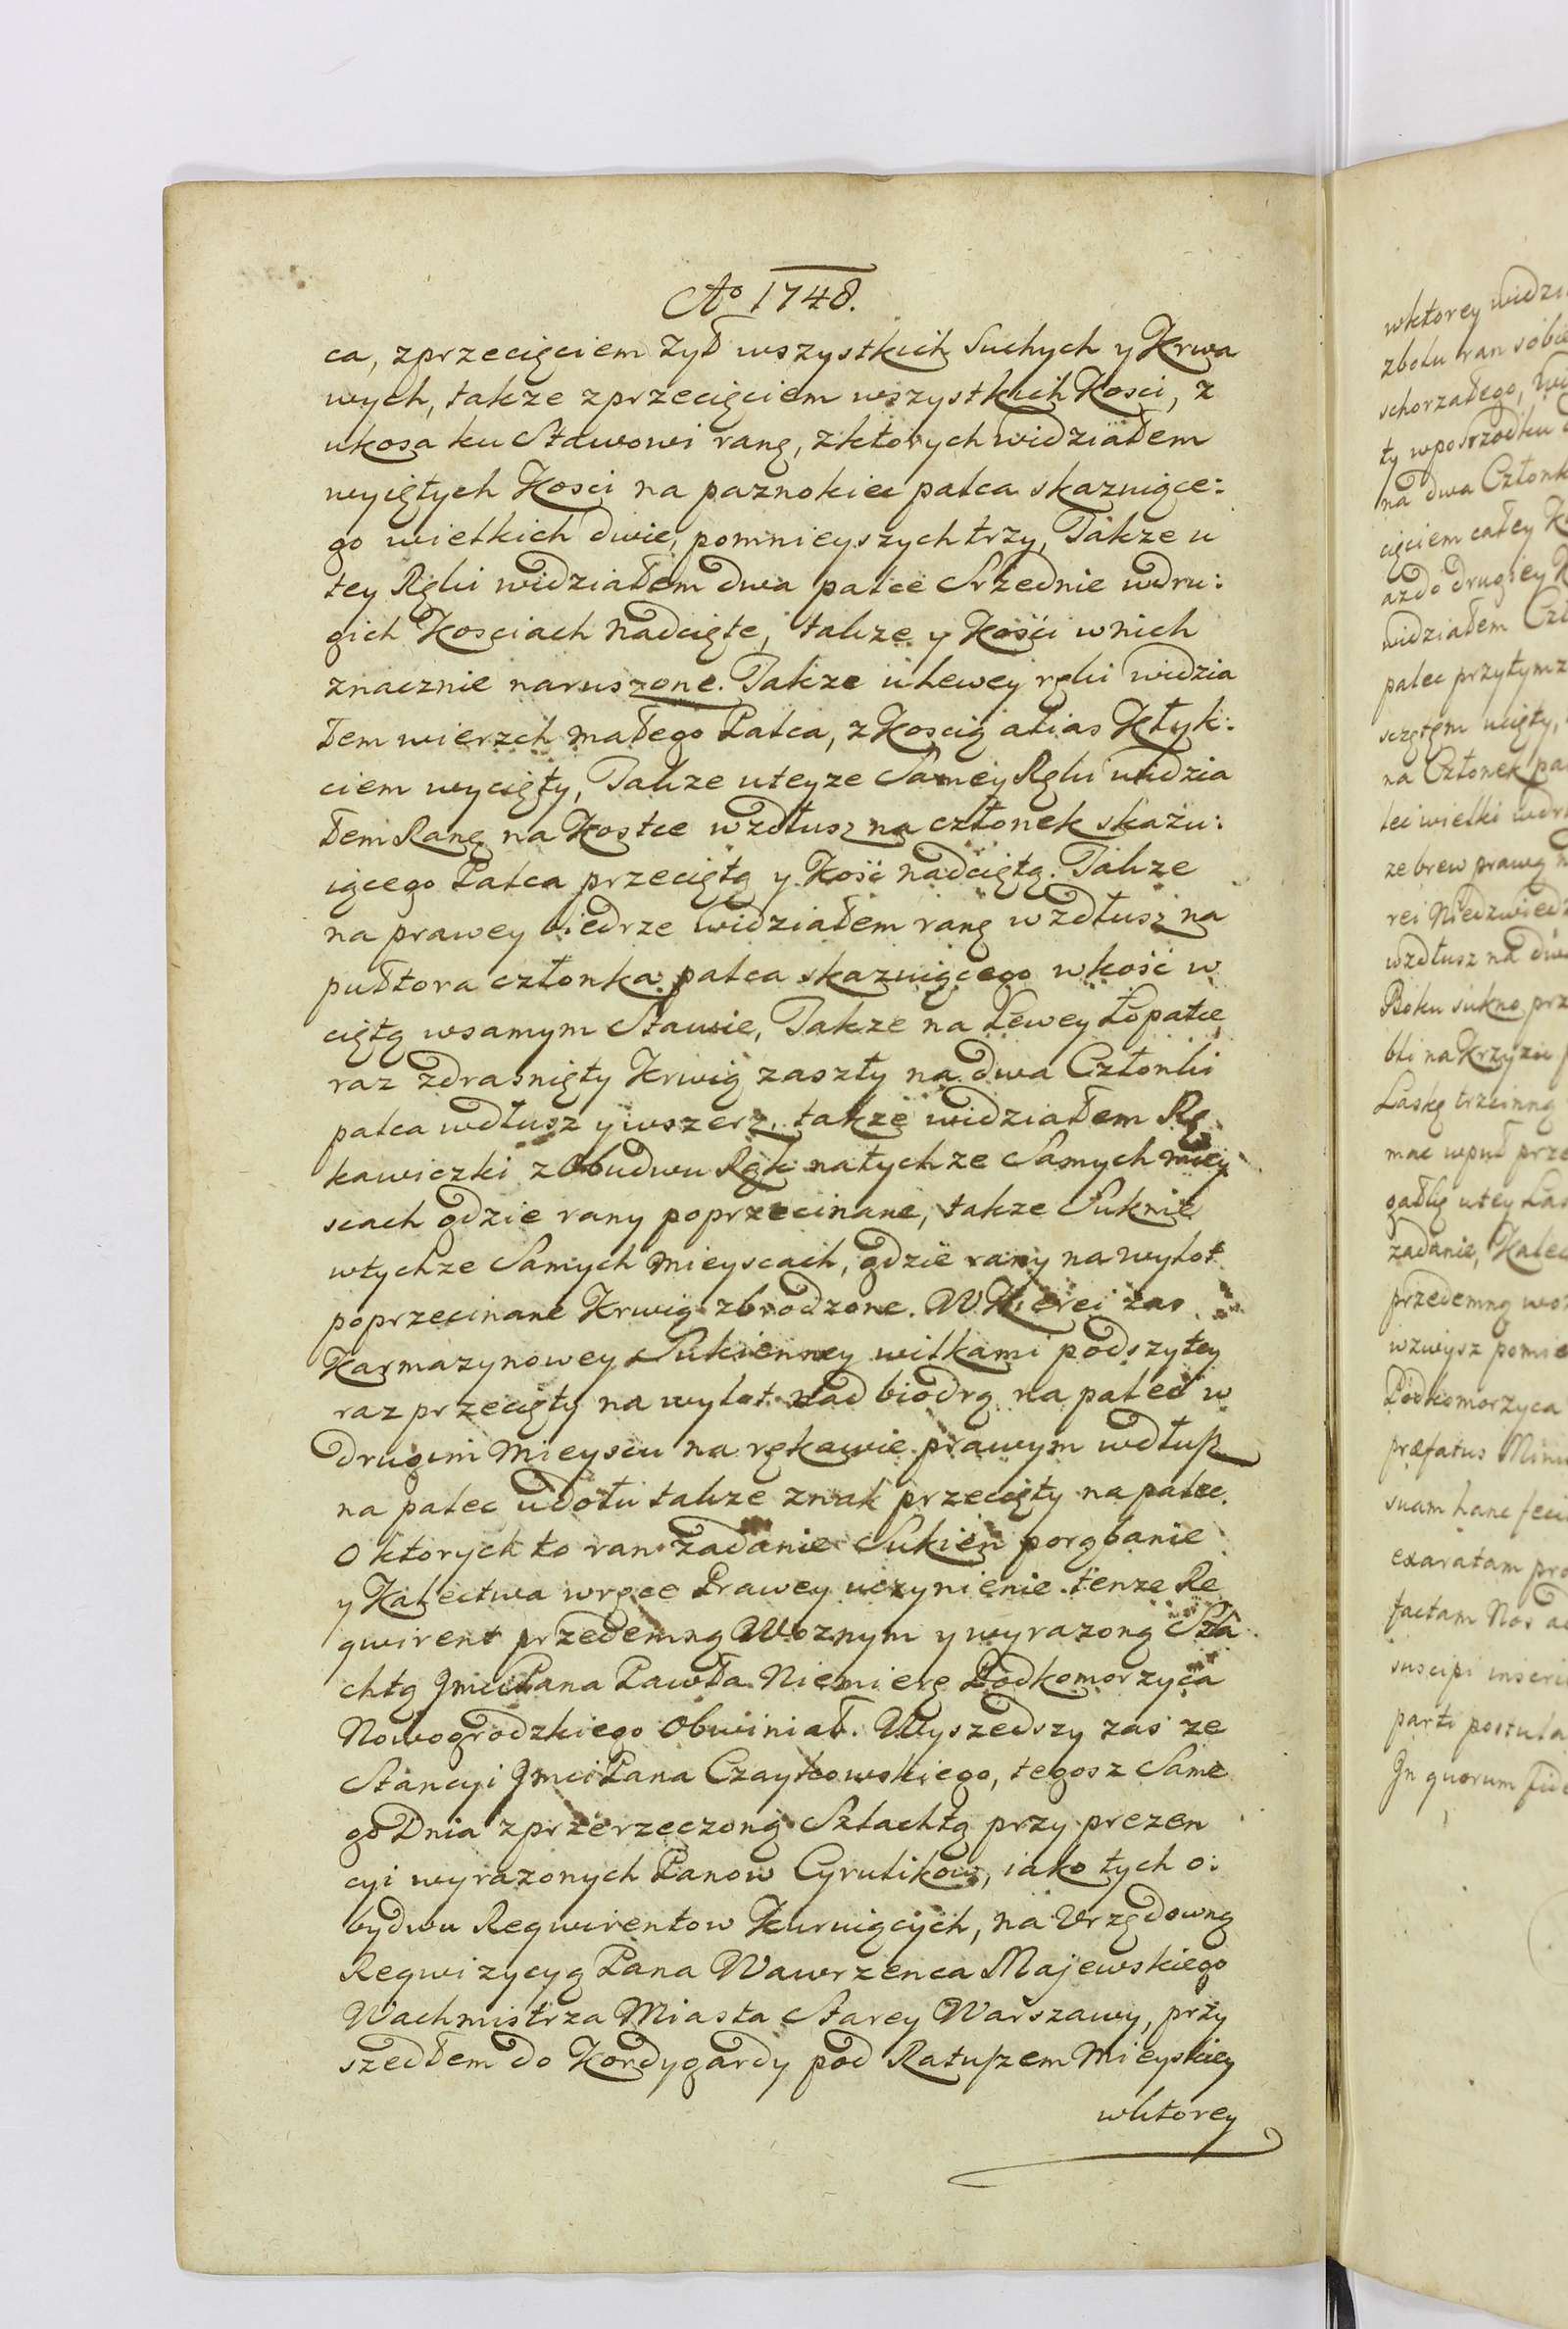 Aº 1748.
ca, zprzecięciem Zył wszystkich Suchych y Krwa
wych, takze zprzecięciem wszystkich Kosci, z
ukosa ku Stawowi ranę, zktorych widziałem
wyiętych Kosci na paznokiec palca skazuiące:
go wielkich dwie, pomnieyszych trzy, Takze u
tey Ręki widziałem dwa palce Srzednie wdru:
gich Kosciach nadcięte, takze y Kości wnich
znacznie naruszone. Takze u Lewey ręki widzia
łem wierzch małego Palca, z Koscią alias Kłyk:
ciem wycięty, Takze uteyze Samey Ręki widzia
łem Ranę na Kostce wzdłusz na członek skazu:
iącego Palca przeciętą y Kość nadciętą. Takze
na prawey biedrze widziałem ranę wzdłusz na
pułtora członka palca skazuiącego wkość w
ciętą wsamym Stawie, Takze na Lewey Łopatce
raz zdrasnięty Krwią zaszły na dwa Członki
palca wdłusz y wszerz, takze widziałem Rę
kawiczki z Obudwu Ręk natychze Samych miey
scach gdzie rany poprzecinane, takze Suknie
wtychze Samych Mieyscach, gdzie rany na wylot
poprzecinane Krwią zbrodzone. W Kierei zas
Karmazynowey Sukienney wilkami podszytey
raz przecięty na wylot nad biodrą na palec w
drugim Mieyscu na rękawie prawym wdłusz
na palec udołu takze znak przecięty na palec.
O ktorych to ran zadanie Sukien porąbanie
y Kalectwa wręce Prawey uczynienie tenze Re
qwirent przedemną Woznym y wyrazoną Szla
chtą Jmci Pana Pawła Niemierę Podkomorzyca
Nowogrodzkiego Obwiniał. Wyszedszy zas ze
Stancyi Jmci Pana Czaykowskiego, tegosz Same
go Dnia zprzerzeczoną Szlachtą przy prezen
cyi wyrazonych Panow Cyrulikow, iako tych o:
bydwu Reqwirentow Kuruiących, na Vrzędowną
Reqwizycyą Pana Wawrzenca Majewskiego
Wachmistrza Miasta Starey Warszawy, przy
szedłem do Kordygardy pod Ratuszem Mieyskiey
wktorey
wktorey
zbolu ran
schorzałego,
ty wposrzodku
na dwa
cięciem całey
azdo drugiey
widziałem
palec przytym
ucięty,
na Członek
lec wielki
ze brew prawą
rei
wzdłusz na
Boku sukno
bli na Krzyzu
Laskę trzcinną
mac wpuł
gałkę utey
zadanie,
przedemną
wzwysz
Podkomorzyca
præfatus
suam hanc
exaratam
factam Nos
suscipi
parti
Jn quorum